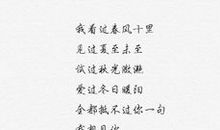 我看过春风十里
见过夏至未至
试过秋光潋滟
爱过冬日暖阳
全都抵不过你一句
我想见你